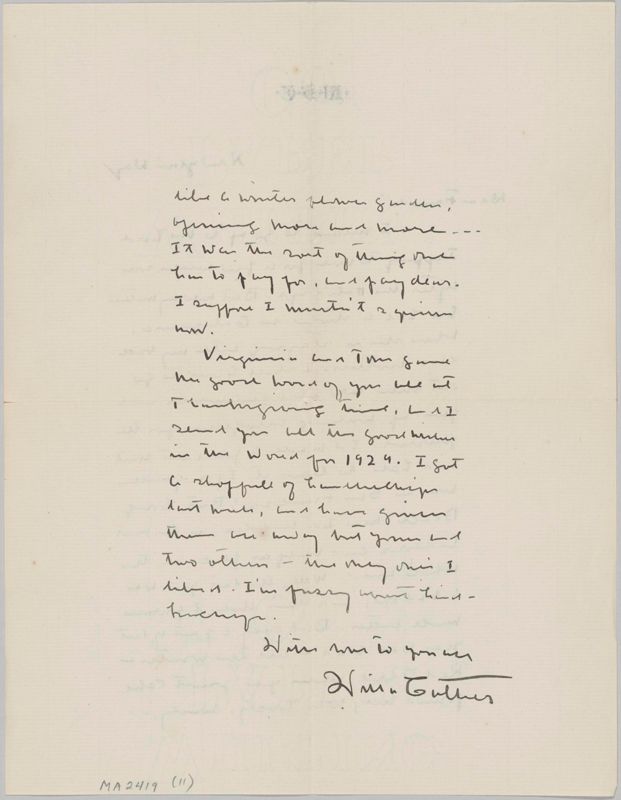 like a winter flower garden,
opening more and more....
It was the sort of thing one
has to pay for, and pay dear.
I suppose I mustn't squirm
now.
Virginia and Tom gave
me good word of you all at
Thanksgiving time, and I
send you all the good wishes
in the world for 1924. I got
a shopfull of handkerchiefs
last week, and have given
them all away but yours and
two others – the only ones I
liked. I'm fussy about hand-
kerchiefs.
With love to you all
Willa Cather
MA 2419 (11)